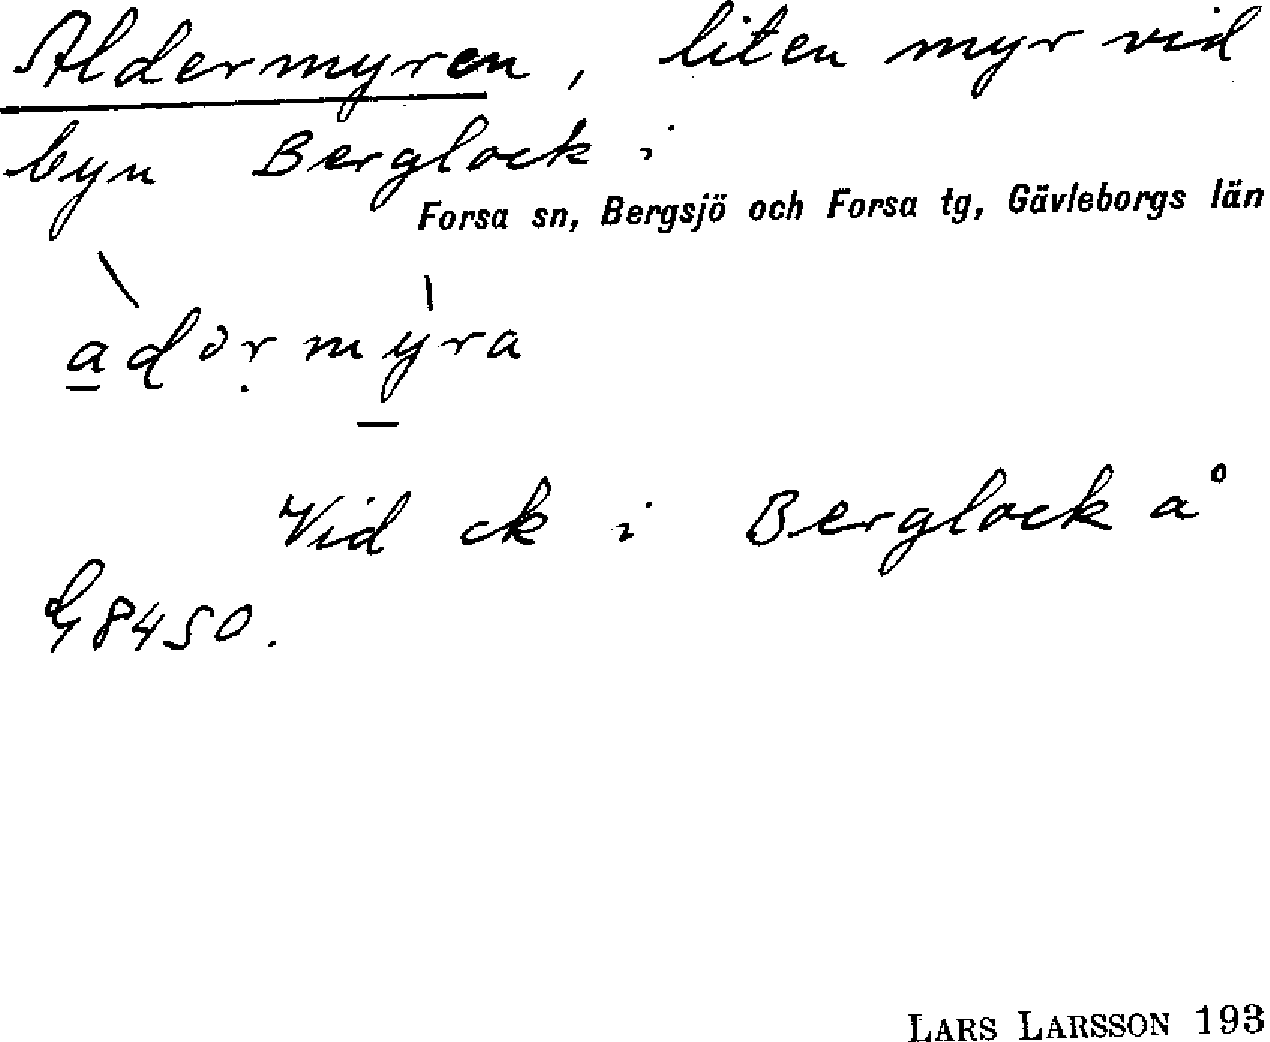 Aldermyren, liten myr vid
byn Berglock i
Forsa sn, Bergsjö och Forsa tg, Gävleborgs län
adərmyra
Vid ck i Berglock å
G 8450.
LARS LARSSON 193